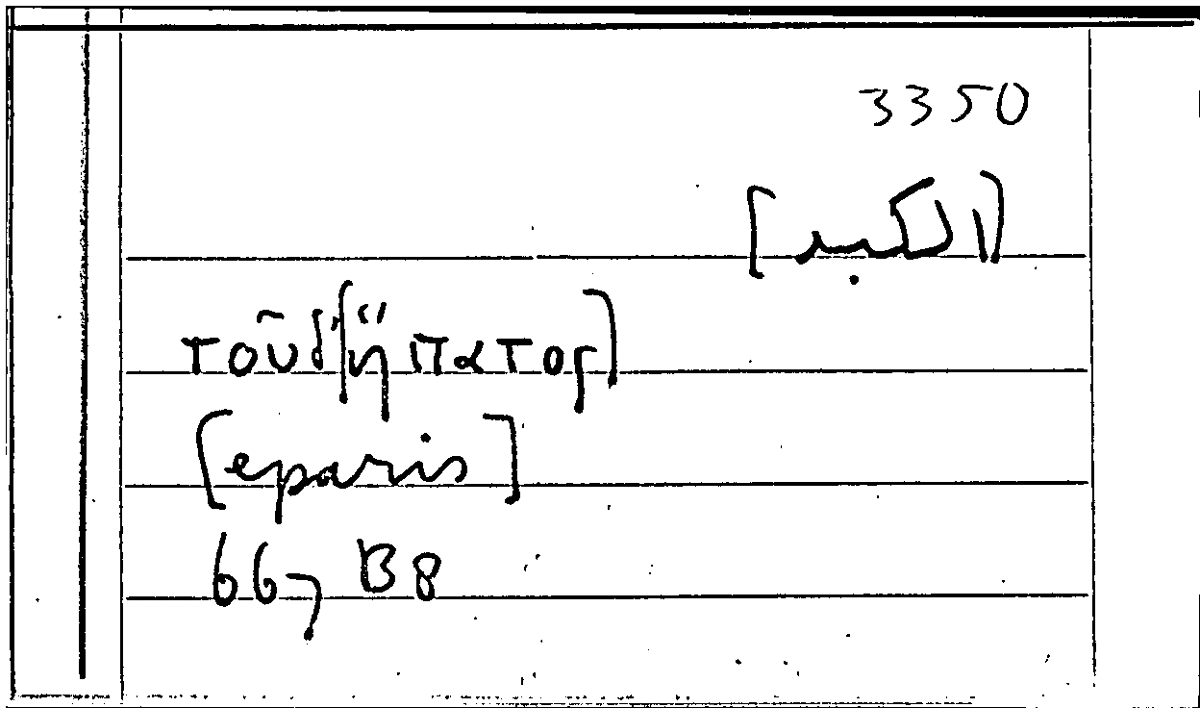 3350
[الكبد]
τοῦ δ' [ἥπατος]
[eparis]
667 B8